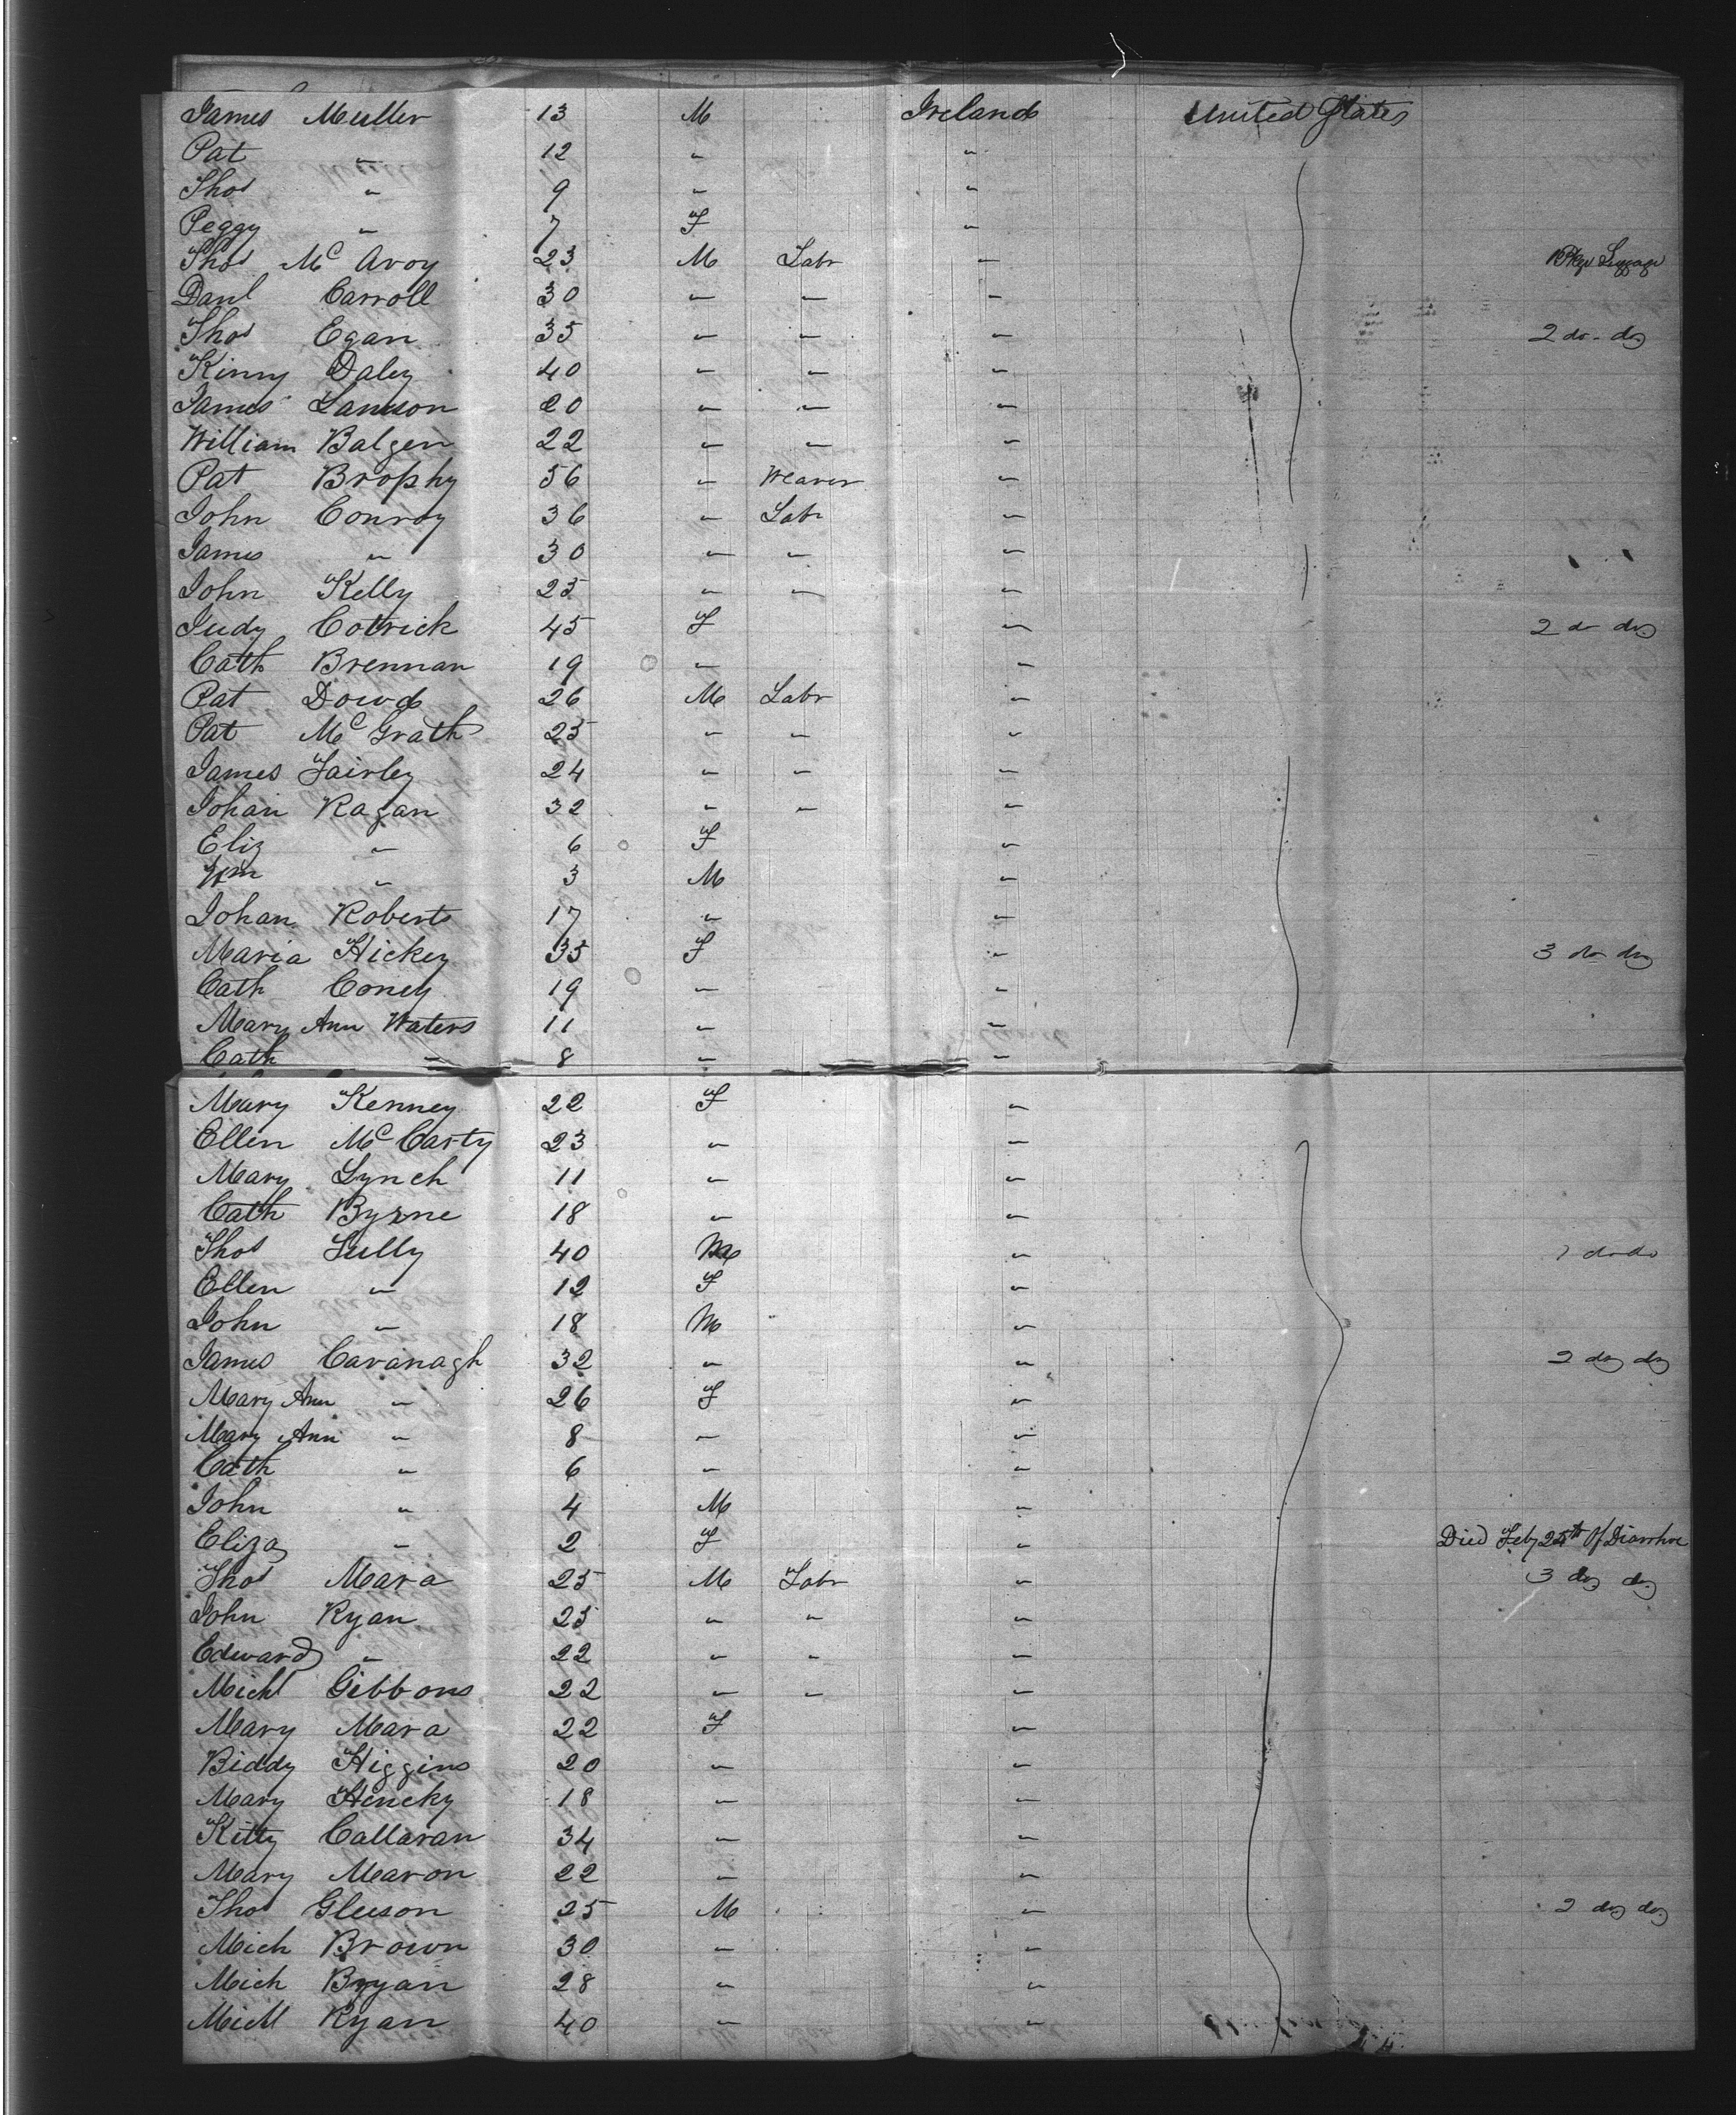 James Muller 13 M Ireland United States
Pat " 12 " "
Thos " 9 " "
Peggy " 7 F "
Thos Mc Avoy 23 M Labr " Pkge Luggage
Danl Carroll 30 " " "
Thos Egan 35 " " " 2 do do
Kinny Daley 40 " " "
James 20 " " "
William Balgen 22 " " "
Pat Brophy 56 " Weaver "
John Conroy 36 " Labr "
James " 30 " " "
John Kelly 25 " " "
Judy Cotrick 45 F " 2 do do
Cath Brennan 19 " "
Pat Dowd 26 M Labr "
Pat Mc Grath 25 " " "
James Fairley 24 " " "
Johan Ragan 32 " " "
Eliz " 6 F "
Wm " 3 M "
Johan Roberts 17 " "
Maria Hickey 35 F " 3 do do
Cath Coney 19 " "
Mary Ann Waters 11 " "
Cath " 8 " "
Mary Kenney 22 F "
Ellen Mc Carty 23 " "
Mary Lynch 11 " "
Cath Byrne 18 " "
Thos Lully 40 M " do do
Ellen " 12 F "
John " 18 M "
James Cavanagh 32 " " 2 do do
Mary Ann " 26 F "
Mary Ann " 8 " "
Cath " 6 " "
John " 4 M "
Eliza " 2 F " Died Feby 25th Of Diarrhoe
Thos Mara 25 M Labr " 3 do do
John Ryan 25 " " "
Edward " 22 " " "
Michl Gibbons 22 " " "
Mary Mara 22 F "
Biddy Higgins 20 " "
Mary Hincky 18 " "
Kitty Callaran 34 " "
Mary Maron 22 " "
Thos Gleeson 25 M " 2 do do
Mich Brown 30 " "
Mich Bryan 28 " "
Michl Ryan 40 " "